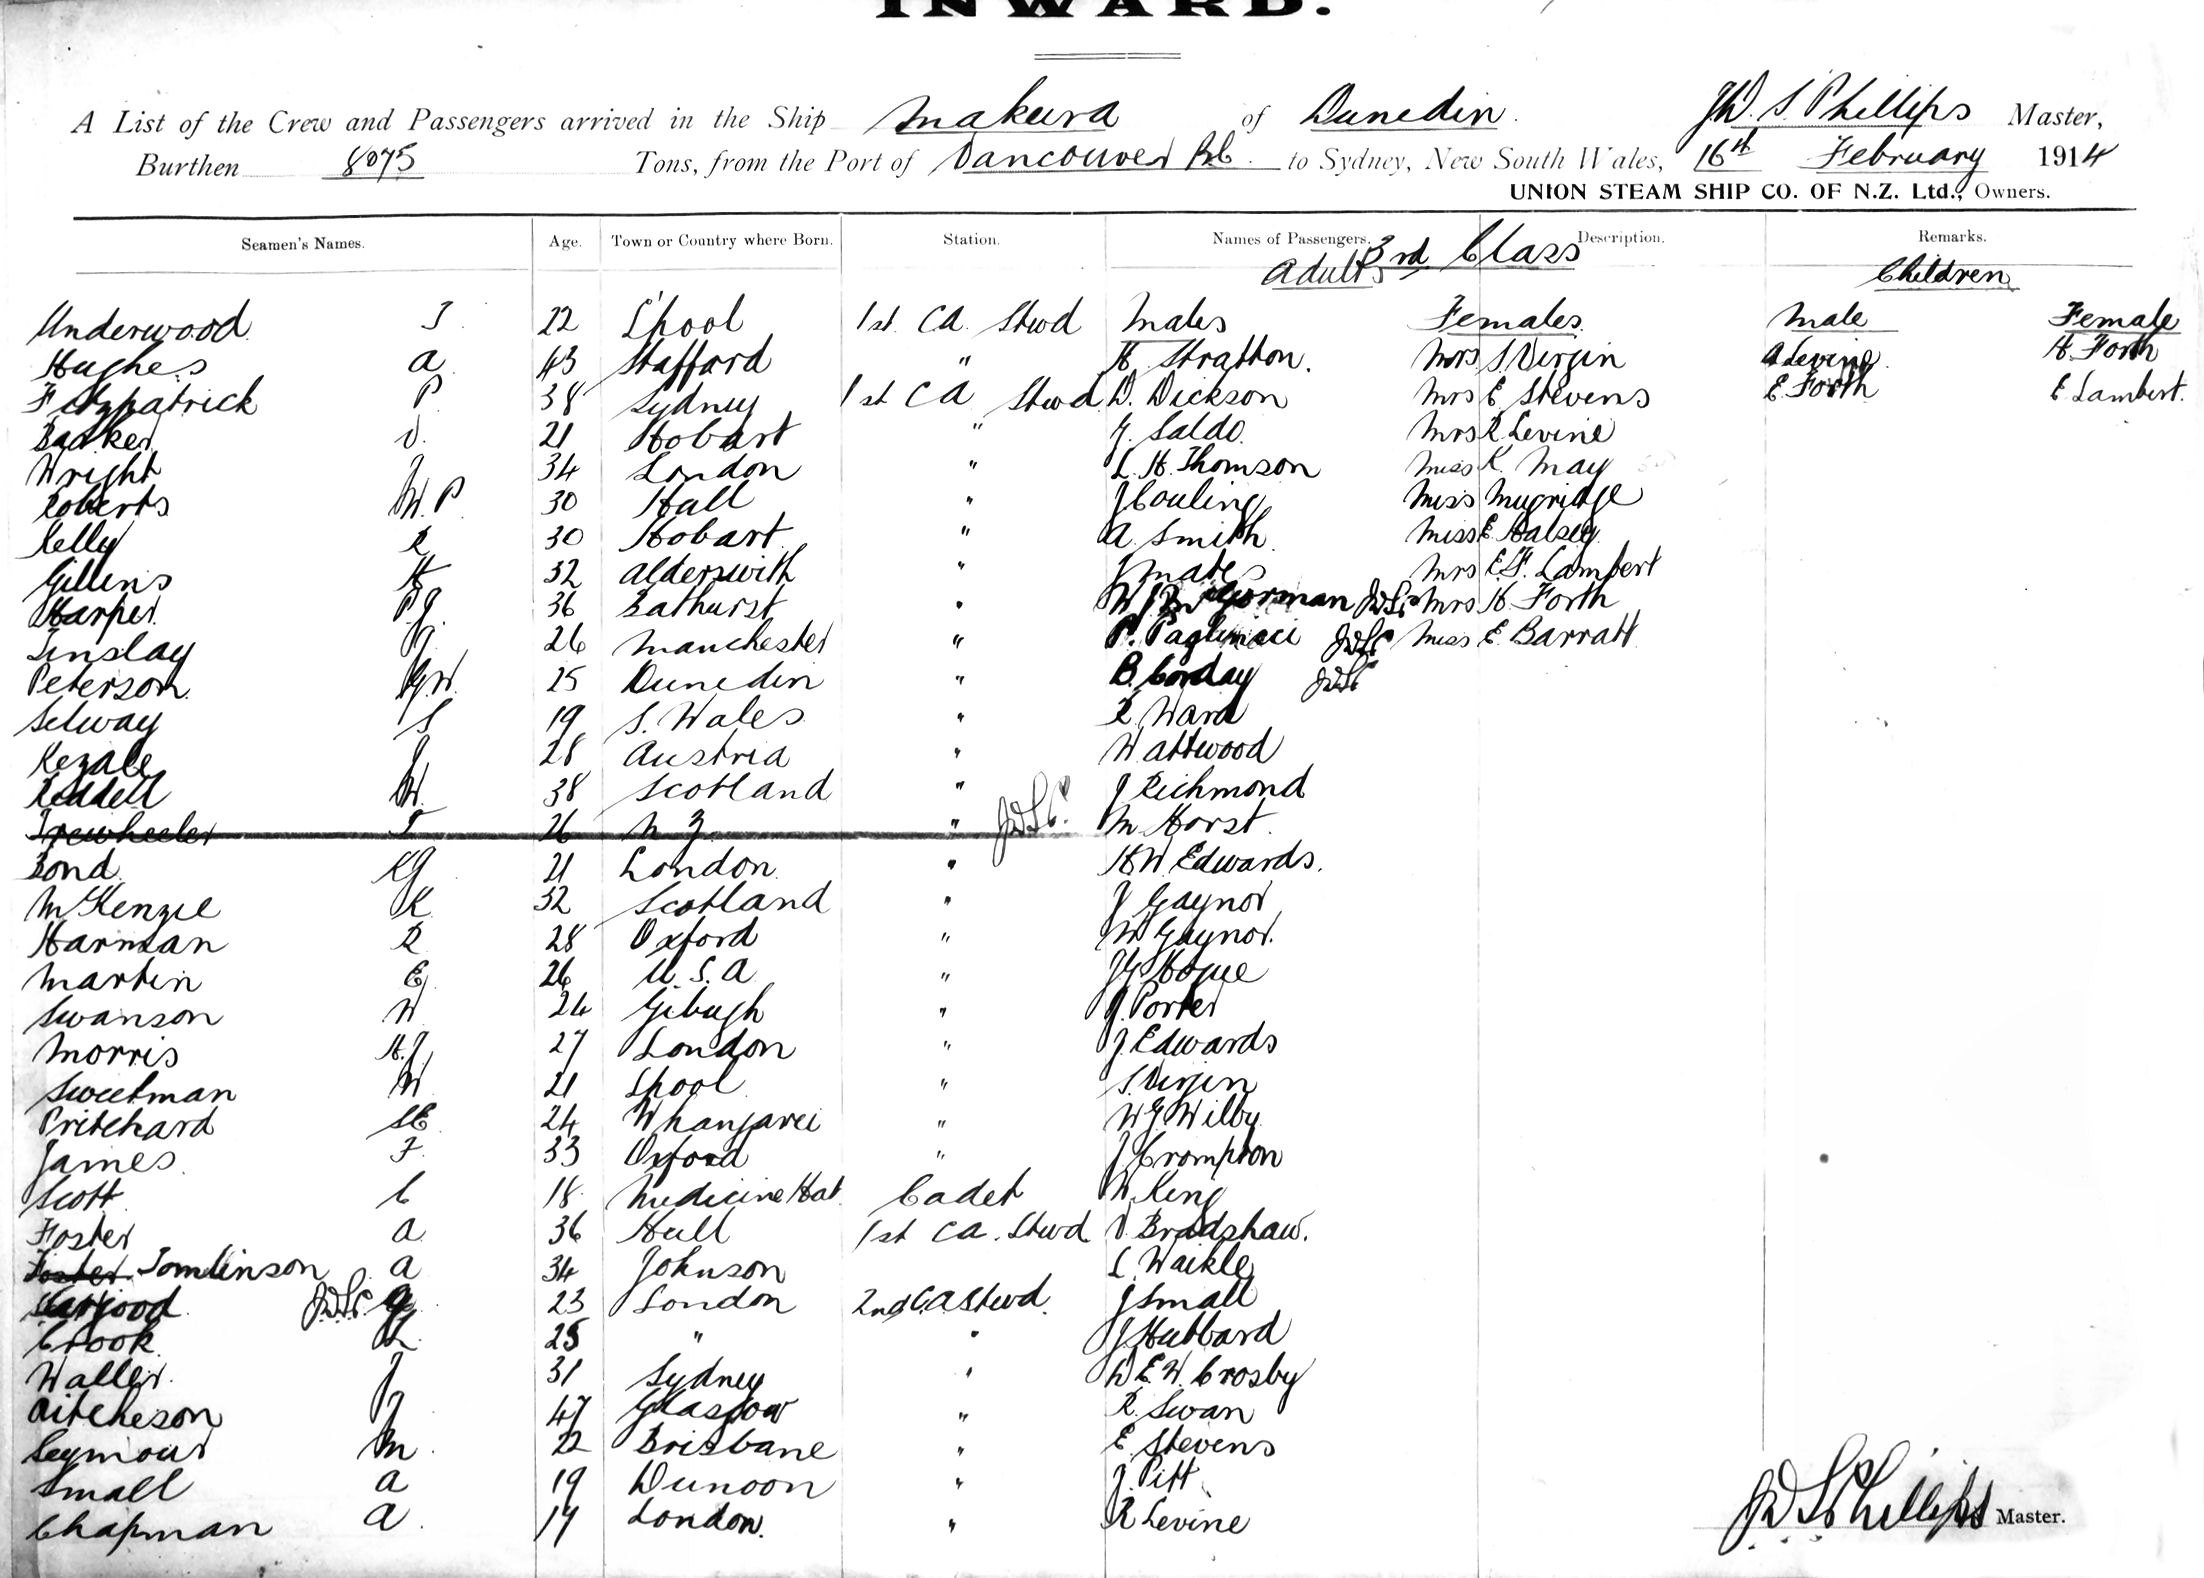 INWARD.
A List of the Crew and Passengers arrived in the Ship Makura of Dunedin. J.D.S. Phillips Master,
Burthen 8075 Tons, from the Port of Vancouver B.C. to Sydney, New South Wales, 16th February 1914
UNION STEAM SHIP CO. OF N.Z. Ltd., Owners.
Seamen's Names. Age. Town or Country where Born. Station. Names of Passengers. 3rd Class Description. Remarks.
Adults Children
Underwood J 22 L'pool 1st CA Stwd Males Females Male Female
Hughes A 43 Stafford " H Stratton. Mrs S. Virgin A Levine H. Forth
Fitzpatrick P 38 Sydney 1st CA Stwd D. Dickson Mrs E Stevens E Forth E Lambert.
Barker V. 21 Hobart " G. Saldo. Mrs R Levine
Wright J 34 London " L. H. Thomson Miss K. May
Roberts W. P 30 Hull " J Couling Miss Mugridge
Kelly R 30 Hobart " A Smith Miss E Halsey
Gillens H 32 " Mrs E.F. Lambert
Harper P.J. 36 Bathurst " Gorman JDSP Mrs H. Forth
Tinslay H 26 Manchester " P. JDSP Miss E Barratt
Peterson GW. 25 Dunedin " B. Corday JDSP
Selway S 19 S. Wales " R Ward
J 28 Austria " W Attwood
Riddell W. 38 Scotland " J Richmond
Trewheeler T 26 N Z " JDSP. M Horst.
Bond RG 21 London " H W. Edwards.
McKenzie K 32 Scotland " J Gaynor
Harman R 28 Oxford " W Gaynor.
Martin E 26 U.S.A " J G Hogue
Swanson W 24 " J. Porter
Morris H.J. 27 London " J. Edwards
Sweetman W 21 Lpool " S. Virgin
Pritchard SE 24 Whangarei " W G Wilby
James F 33 Oxford " J Crompton
Scott C 18 Medicine Hat Cadet W King
Foster A 36 Hull 1st CA. Stwd V Bradshaw.
Foster Tomlinson A 34 Johnson L. Waikle
JDSP 23 London 2nd CA Stwd. J Small
Crook L. 25 " " J. Hubbard
Waller J 31 Sydney " D E. W. Crosby
Aitcheson J 47 Glasgow " R. Swan
Seymour M 22 Brisbane " E Stevens
Small A 19 Dunoon " J. Pitt
Chapman A. 19 London. " R Levine
J D S Phillips Master.